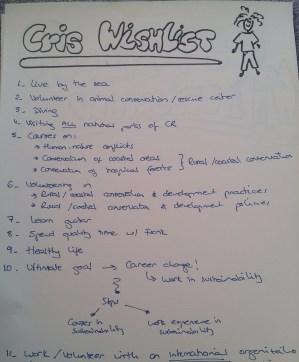 CRIS WISHLIST
1- Live by the sea
2- Volunteer in animal conservation/rescue center
3- Diving
4- Visiting ALL natural parks of CR
5- Courses on:
→ Human-nature conflicts
→ Conservation of coastal areas
→ Conservation of tropical forests } Rural/coastal conservation
6- Volunteering on
→ Rural/coastal conservation & development practices
→ Rural/coastal conservation & development policies
7- Learn guitar
8- Spend quality time w/ Frank
9- Healthy life
10- Ultimate goal → Career change!
↳ Work in sustainability
Steps
Courses in sustainability
work experience in sustainability
11- Work/Volunteer with an international